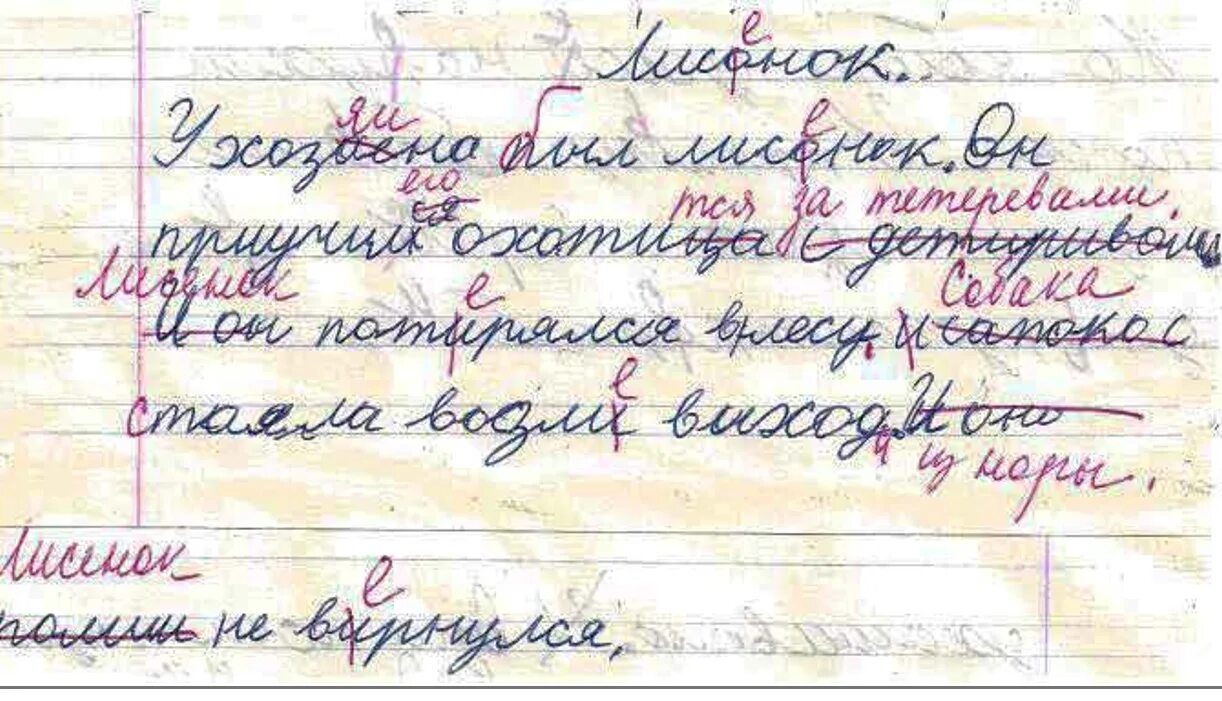 е
Лисонок.
яи е
У хозаена был лисонок. Он
его тся за тетеревами.
приучил ся охотица с детиривоми
Лисенок е Собака
И он потирялся влесу. и сапокас
е
стаяла возли выход. И они
а из норы.
Лисенок е
не вирнулся.